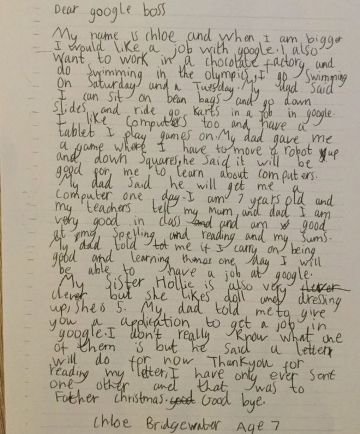 Dear google boss
My name is chloe and when I am bigger
I would like a job with google. I also
want to work in a chocolate factory and
do swimming in the olympics, I go swimming
on Saturday and a Tuesday. My dad said
I can sit on bean bags and go down
slides and ride go karts in a job in google.
I like computers too and have a
tablet I play games on. My dad gave me
a game where I have to move a robot up
and down squares, he said it will be
good for me to learn about computers.
My dad said he will get me a
computer one day. I am 7 years old and
my teachers tell my mum and dad I am
very good in class and am good
at my spelling and reading and my sums.
My dad told me if I carry on being
good and learning one day I will
be able to have a job at google.
My sister Hollie is also very
clever but she likes doll and dressing
up, she is 5. My dad told me to give
you a application to get a job in
google. I don't really know what one
of them is but he said a letter
will do for now. Thankyou for
reading my letter, I have only ever sent
one other and that was to
Father christmas. Good bye.
Chloe Bridgewater Age 7